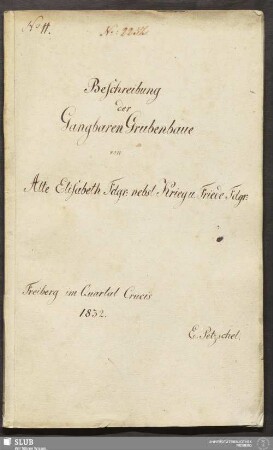 No 11.
Beschreibung
der
Gangbaren Grubenbaue
von
Alte Elisabeth Fdgr. nebst Krieg u Friede Fdgr.
Freiberg im Quartal Crucis
1832.
E. Pötzschel.
SLUB